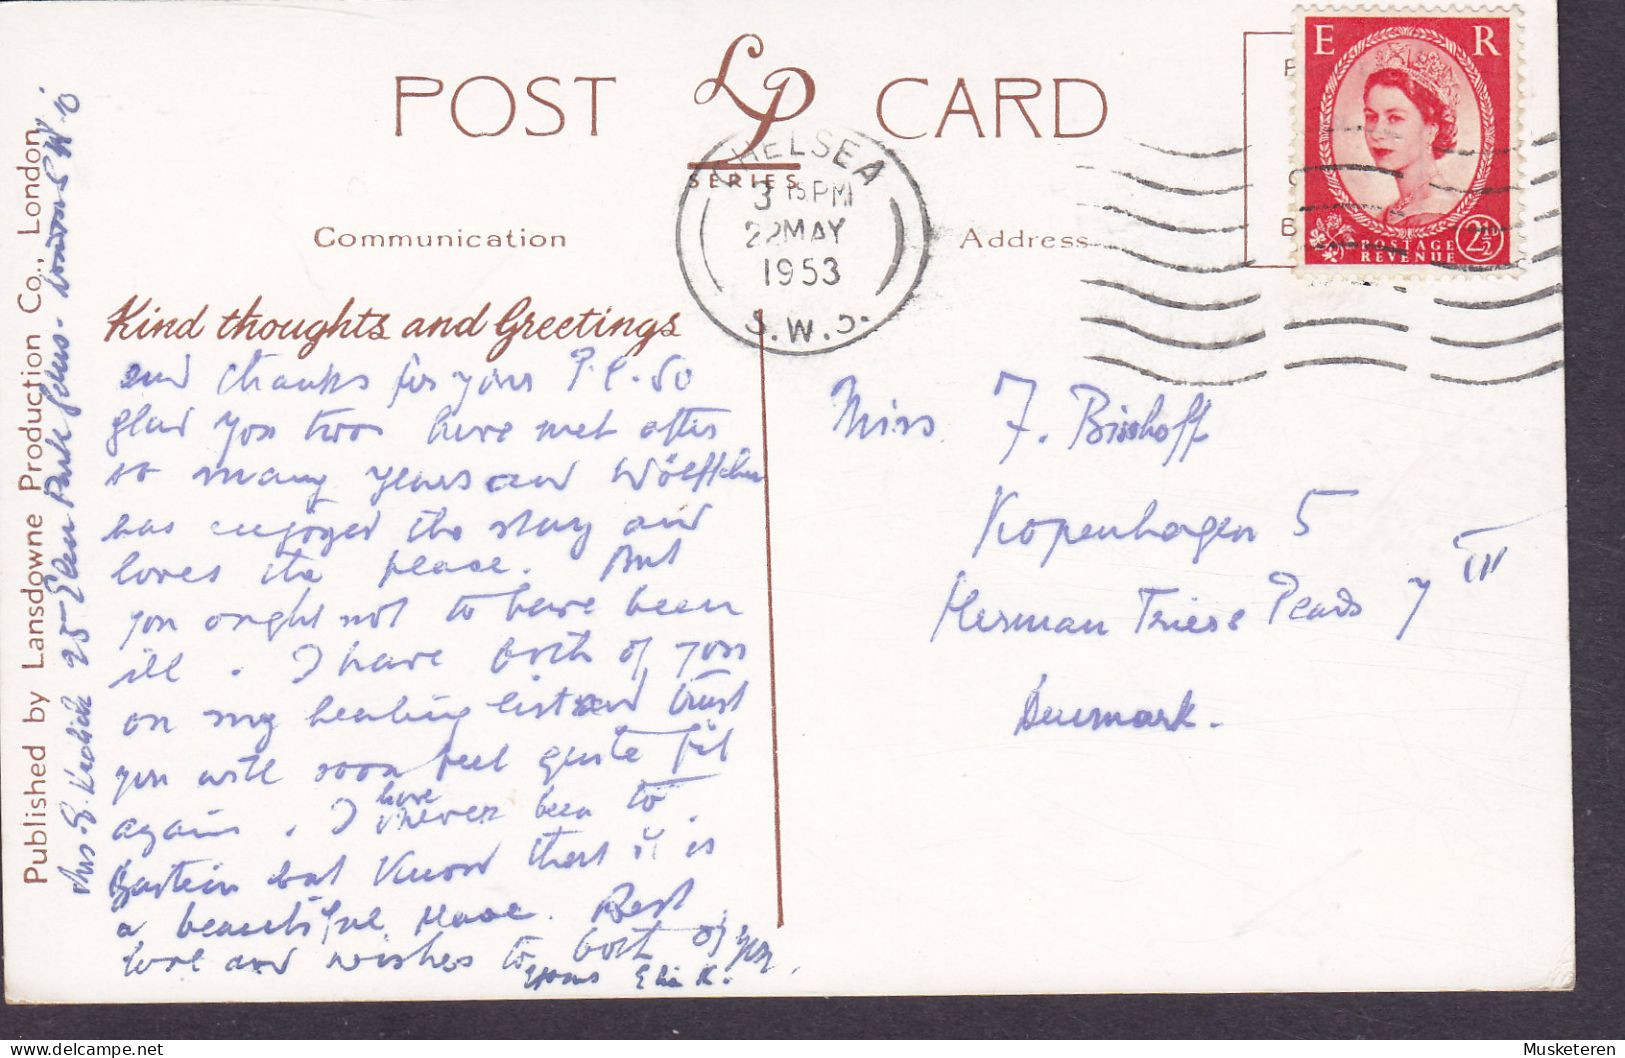 POST LP CARD
SERIES
Communication
Address
CHELSEA
3 15 PM
22 MAY
1953
S.W.3.
E R
POSTAGE
REVENUE
2½D
Published by Lansdowne Production Co., London.
Mrs. 25 Elm Park Gdns. London S W 10
Kind thoughts and Greetings
and thanks for your P.C. So
glad you two have met after
so many years and Wölffchen
has enjoyed the stay and
loves the place. But
you ought not to have been
ill. I have both of you
on my healing list and trust
you will soon feel quite fit
again. I have never been to
Gastein but know that it is
a beautiful place. Best
love and wishes to both of you,
Yours K.
Miss F. Bisshoff
Kopenhagen 5
Herman Triers Plads 7 III
Denmark.
Musketeren delcampe.net